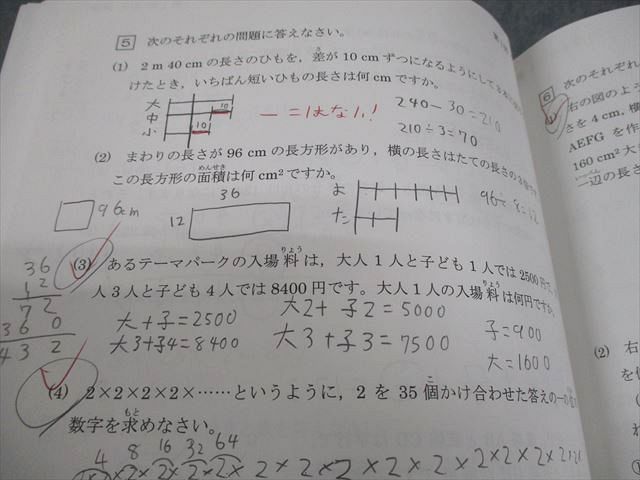 5 次のそれぞれの問題に答えなさい。
(1) 2 m 40 cm の長さのひもを，差が 10 cm ずつになるようにして3本に
けたとき，いちばん短いひもの長さは何 cm ですか。
大
中
小
10
10
一 = はない!
240-30=210
210÷3=70
(2) まわりの長さが 96 cm の長方形があり，横の長さはたての長さの3
この長方形の面積は何 cm² ですか。
96cm
36
12
よ
た
96÷8=12
(3) あるテーマパークの入場料は，大人1人と子ども1人では2500円
人3人と子ども4人では8400円です。大人1人の入場料は何円ですか。
36
12
72
360
432
大+子=2500
大3+子4=8400
大2+子2=5000
大3+子3=7500
子=900
大=1600
(4) 2×2×2×2×……というように，2を35個かけ合わせた答えの一の
数字を求めなさい。
4 8 16 32 64
2×2×2×2×2×2×2×2×2×2×2×2×2
6 次のそれぞれ
右の図のよう
さを4 cm，横
AEFG を作
160 cm² 大
一辺の長さ
(2) 右
を使